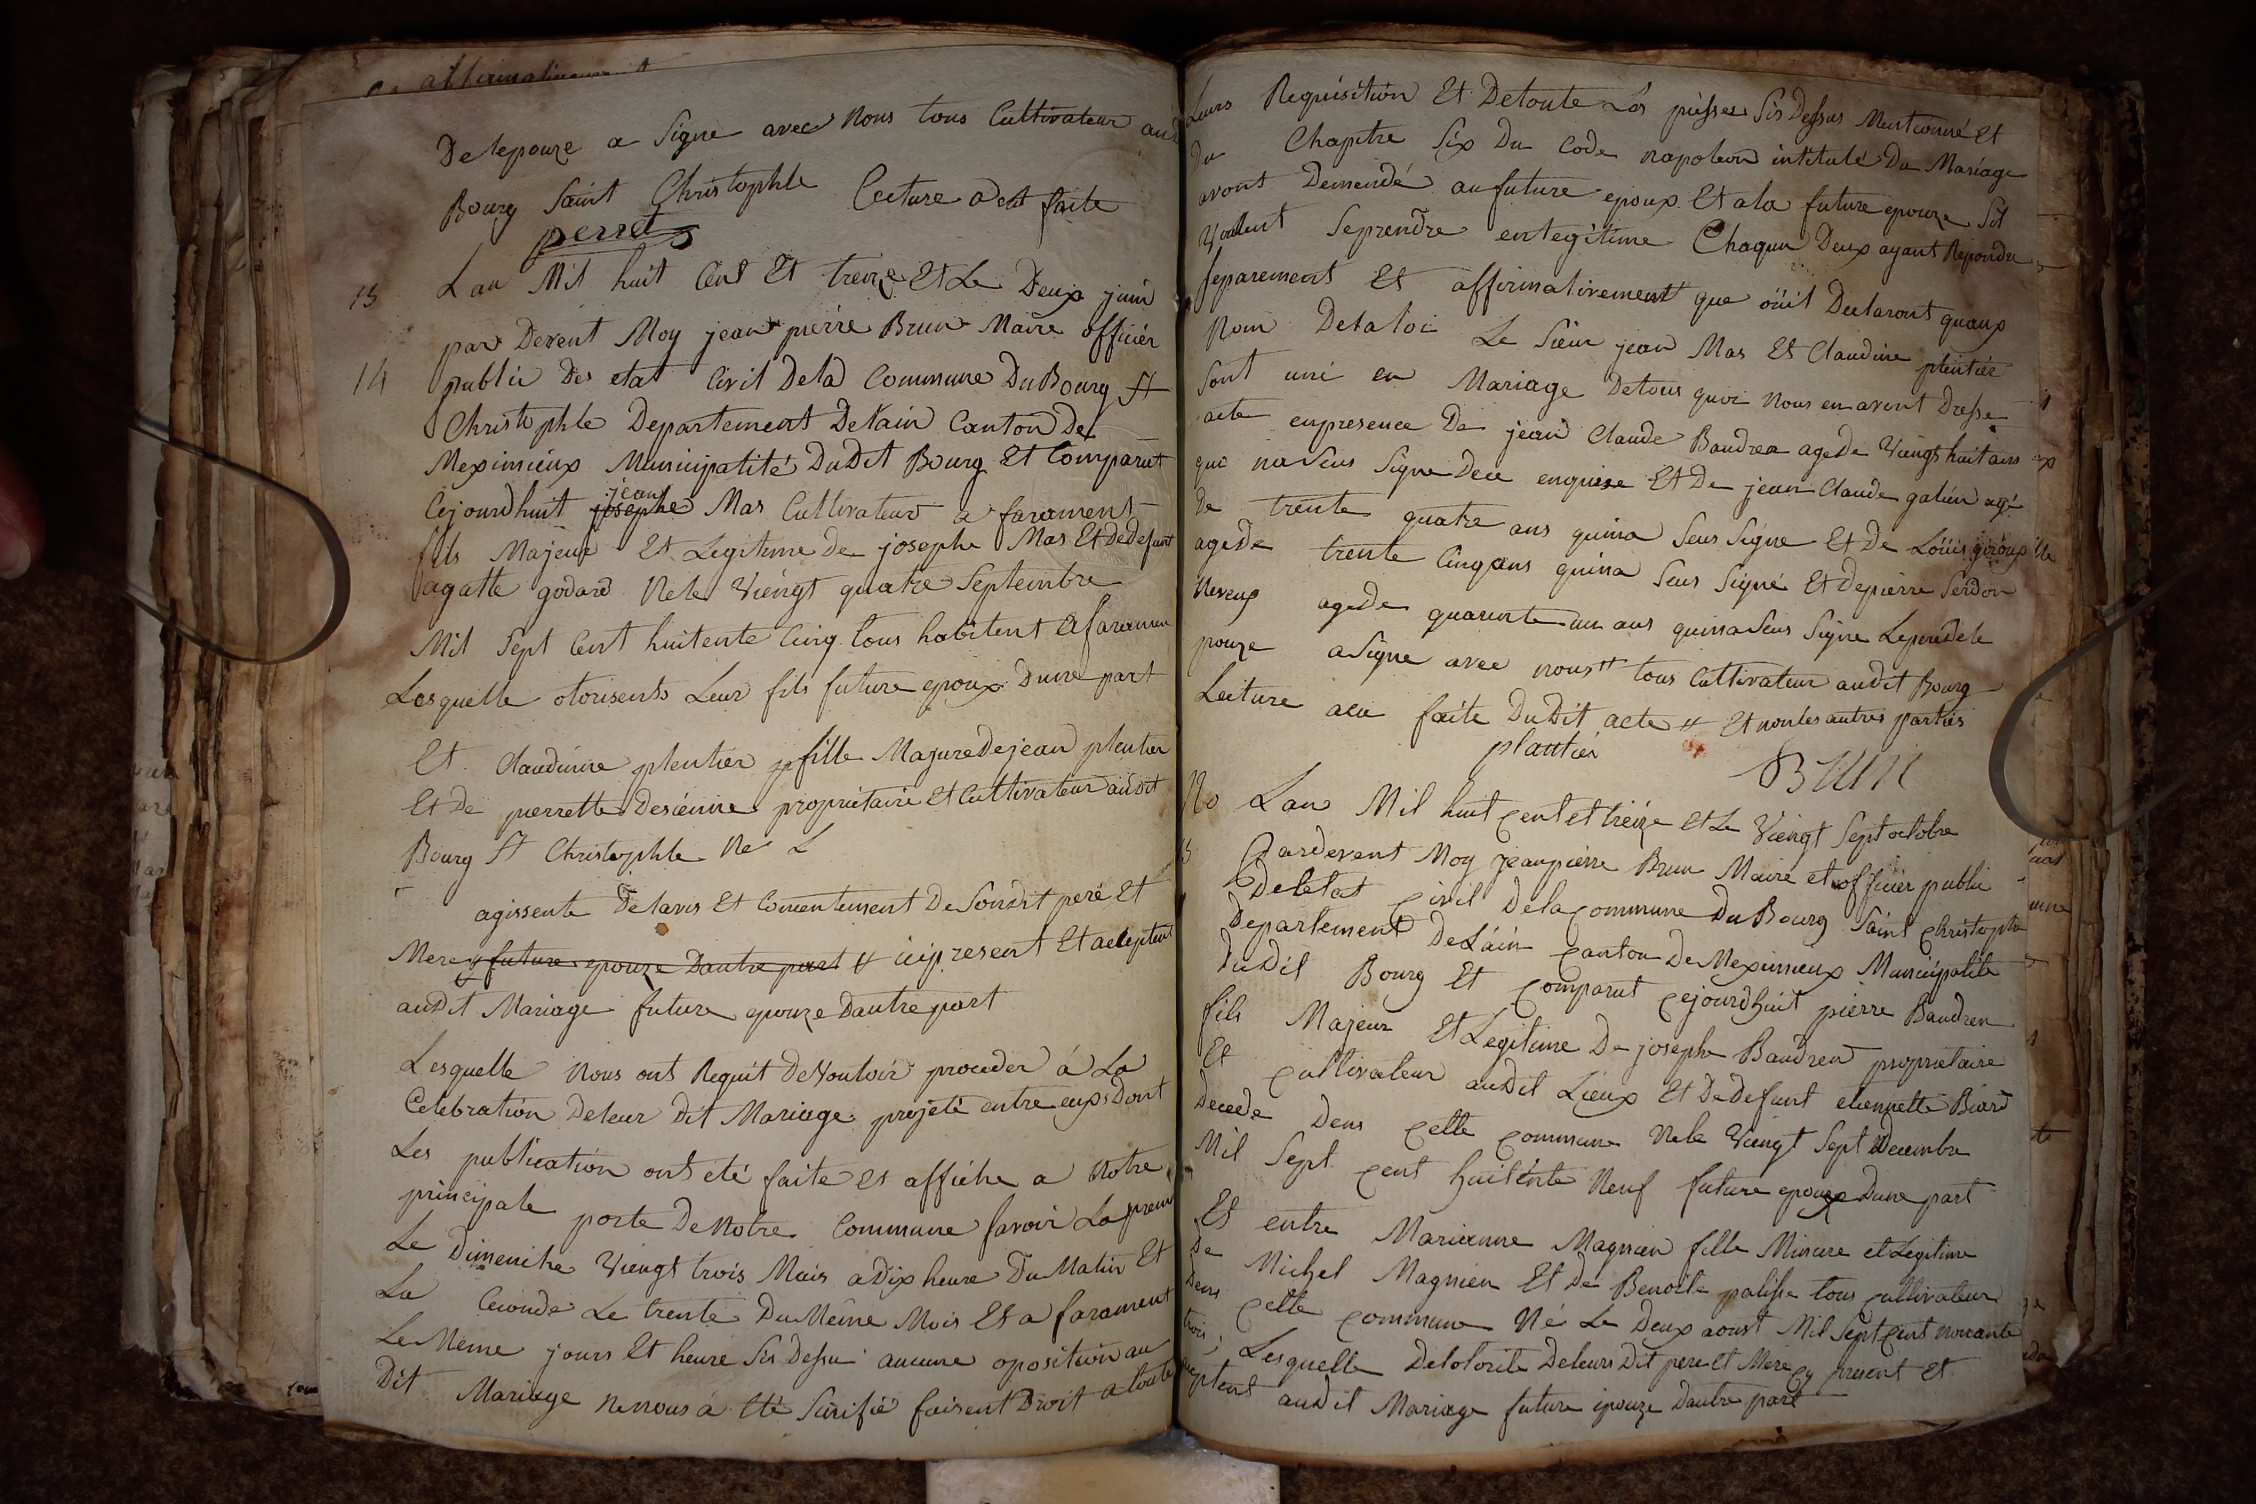 affirmativement
De lepouze a Signe avec Nous tous Cultivateur aud
Bourg Saint Christophle Lecture a eté faite
perret
13 Lan Mil huit Cent Et treize Et Le Deux juin
par Devent Moy jean pierre Brun Maire officier
14 public Des etat Civil Dela Commune Du Bourg St
Christophle Departement De Lain Canton De
Meximieux Municipalité DuDit Bourg Et Comparut
Cejourdhuit josephe jean Mas Cultivateur a farament
fils Majeur Et Legitime De josephe Mas Et De Defunt
agatte godard Ne le Viengt quatre Septembre
Mil Sept Cent huitente Cinq tous habitent a faramen
Lesquelle otorisents Leur fils future epoux Dune part
Et Claudinne plentier fille Majure De jean plentier
Et De pierrette Desienne propriétaire Et Cultivateur audit
Bourg St Christophle Ne L
agissente De lavis Et Consentement De Sondit peré Et
Mere future epouze Dautre part icipresent Et acceptent
auDit Mariage future epouze Dautre part
Lesquelle Nous ont Requit De Vouloir proceder á La
Celebration De leur Dit Mariage projeté entre eux Dont
Les publication ont eté faite Et affiche a Notre
principale porte De Notre Commune Savoir La premi
Le Dimenche Viengt trois Mais a Dix heure Du Matin Et
La Ceconde Le trente Du Même Mois Et a farament
Le Meme jours Et heure Sis Dessu aucune oposition au
Dit Mariage Ne nous á Eté Sinifié faisent Droit a toute
Leurs Requisition Et De toute Les piesses Sis Dessus Mentionné Et
Du Chapitre Six Du Code napoleon intitulé Du Mariage
avont Demendé au future epoux Et a la future epouze Sil
Veulent Se prendre en legitime Chaqun Deux ayant Repondu
Separement Et affirmativement que oüit Declaront quaux
Nom De la loi Le Sieur jean Mas Et Claudine plentier
Sont uni en Mariage De tous quoi Nous en avont Dresse
acte en presence De jean Claude Baudren age De Viengt huit ans
qui na Seus Signe De ce enquise Et De jean Claude galien agé
De trente quatre ans qui na Seus Signe Et De Loüis giroux
age De trente Cinq ans qui na Seus Signé Et De pierre Serdon
Neveux age De quarente un ans qui na Seus Signe Le pere De le
pouze a Signe avec nous tous Cultivateur auDit Bourg
Lecture a eu faite DuDit acte Et non les autres parties
plantier Brun
No Lan Mil huit Cent et treize Et Le Viengt Sept octobre
15 Pardevent Moy jeanpierre Brun Maire et officier public
De letat Civil De la Commune Du Bourg Saint Christophe
Departement De Láin Canton De Meximieux Municipalité
DuDit Bourg Et Comparut Cejourdhuit pierre Baudren
fils Majeur Et Legitime De josephe Baudren propriétaire
Et Cultivateur auDit Lieux Et De Defunt etiennette Biard
Decede Dens Cette Commune Ne le Viengt Sept Decembre
Mil Sept Cent huitente Neuf future epoux Dune part
Et entre Marianne Magnien fille Mineure et Legitime
De Michel Magnien Et De Benoite palisse tous Cultivateur
Dens Cette Commune Né Le Deux aoust Mil Sept Cent nonante
trois, Lesquelle De lotorite De leurs Dit pere et Mere Cy present Et
aceptent auDit Mariage future epouze Dautre part